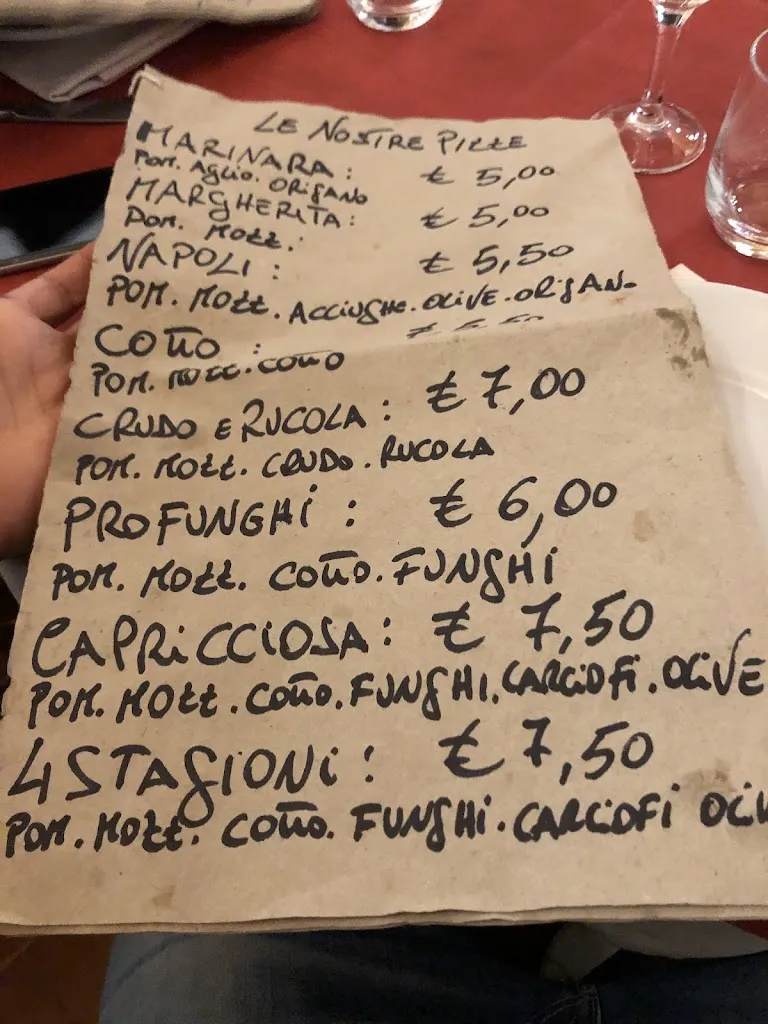 LE NOSTRE PIZZE
MARINARA: € 5,00
POM. AGLIO. ORIGANO
MARGHERITA: € 5,00
POM. MOZZ.
NAPOLI: € 5,50
POM. MOZZ. ACCIUGHE. OLIVE. ORIGAN.
COTTO:
POM. MOZZ. COTTO
CRUDO E RUCOLA: € 7,00
POM. MOZZ. CRUDO. RUCOLA
PROFUNGHI: € 6,00
POM. MOZZ. COTTO. FUNGHI
CAPRICCIOSA: € 7,50
POM. MOZZ. COTTO. FUNGHI. CARCIOFI. OLIVE
4 STAGIONI: € 7,50
POM. MOZZ. COTTO. FUNGHI. CARCIOFI OLIV